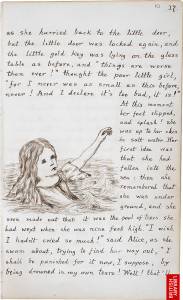 37
as she hurried back to the little door,
but the little door was locked again, and
the little gold key was lying on the glass
table as before, and "things are worse
than ever!" thought the poor little girl,
"for I never was as small as this before,
never! And I declare it's too bad, it is!"
At this moment
her foot slipped,
and splash! she
was up to her chin
in salt water. Her
first idea was
that she had
fallen into the
sea: then she
remembered that
she was under-
ground, and she
soon made out that it was the pool of tears she
had wept when she was nine feet high. "I wish
I hadn't cried so much!" said Alice, as she
swam about, trying to find her way out, "I
shall be punished for it now, I suppose, by
being drowned in my own tears! Well! that'll